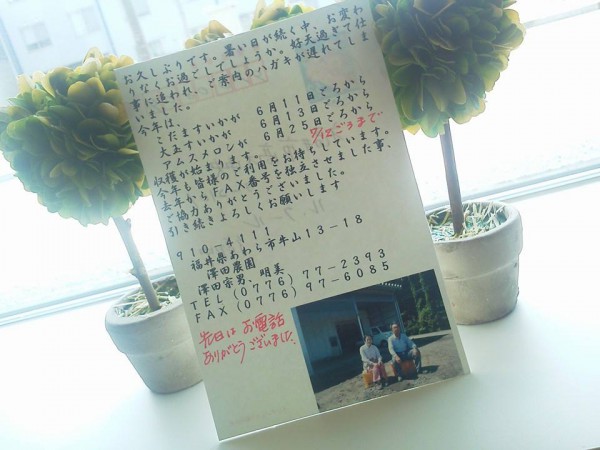 お久しぶりです。暑い日が続く中、お変わ
りなくお過ごしでしょうか。好天過ぎて仕
事に追われ、ご案内のハガキが遅れてしま
いました。
今年は、
こだますいかが 6月11日ごろから
大玉すいかが 6月13日ごろから
アムスメロンが 6月25日ごろから
7/12ごろまで
収穫が始まります。
今年も皆様のご利用をお待ちしています。
去年からFAX番号を独立させました事、
ご協力ありがとうございました。
引き続きよろしくお願いします
910-4111
福井県あわら市牛山13-18
澤田農園
澤田宗男、明美
TEL(0776)77-2393
FAX(0776)97-6085
先日は お電話
ありがとうございました。